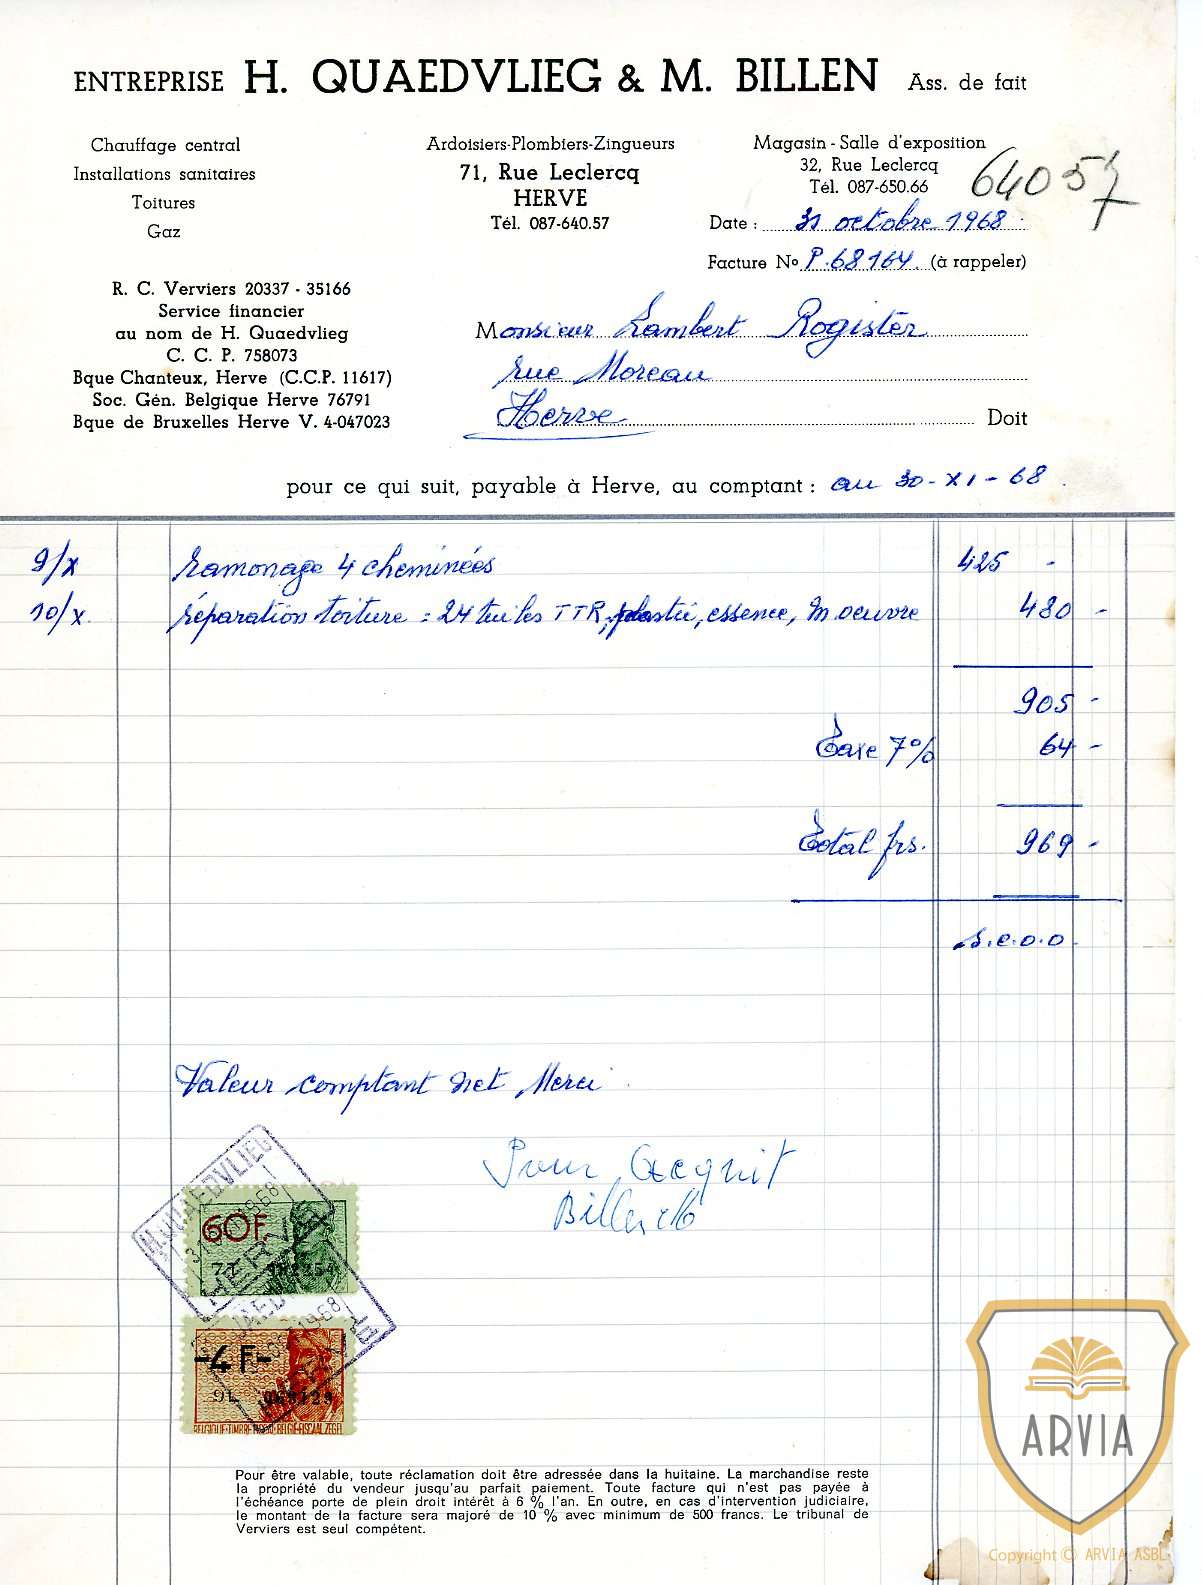 ENTREPRISE H. QUAEDVLIEG & M. BILLEN Ass. de fait
Chauffage central
Installations sanitaires
Toitures
Gaz
Ardoisiers-Plombiers-Zingueurs
71, Rue Leclercq
HERVE
Tél. 087-640.57
Magasin - Salle d'exposition
32, Rue Leclercq
Tél. 087-650.66
64057
Date : 31 octobre 1968
Facture No P.68164. (à rappeler)
R. C. Verviers 20337 - 35166
Service financier
au nom de H. Quaedvlieg
C. C. P. 758073
Bque Chanteux, Herve (C.C.P. 11617)
Soc. Gén. Belgique Herve 76791
Bque de Bruxelles Herve V. 4-047023
Monsieur Lambert Rogister
rue Moreau
Herve Doit
pour ce qui suit, payable à Herve, au comptant : au 30-XI-68
9/X Ramonage 4 cheminées 425 -
10/X. réparation toiture = 24 tuiles TTR, plastic, essence, M oeuvre 480 -
905 -
Taxe 7% 64 -
Total frs. 969 -
s.e.o.o.
Valeur comptant net Merci
Pour Acquit
Billen M
H.QUAEDVLIEG
1968
HERVE
60F.
7L
-4F-
9L
1968
BELGIQUE-TIMBRE FISCAL-BELGIE-FISCAALZEGEL
Pour être valable, toute réclamation doit être adressée dans la huitaine. La marchandise reste
la propriété du vendeur jusqu'au parfait paiement. Toute facture qui n'est pas payée à
l'échéance porte de plein droit intérêt à 6 % l'an. En outre, en cas d'intervention judiciaire,
le montant de la facture sera majoré de 10 % avec minimum de 500 francs. Le tribunal de
Verviers est seul compétent.
ARVIA
Copyright © ARVIA ASBL